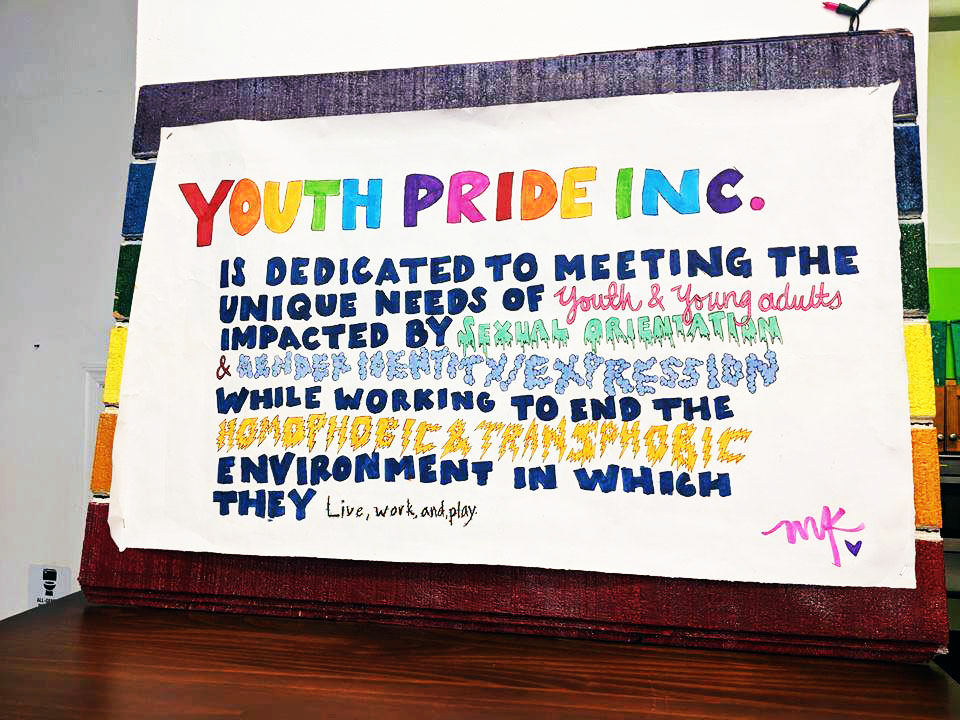 YOUTH PRIDE INC.
IS DEDICATED TO MEETING THE
UNIQUE NEEDS OF Youth & Young adults
IMPACTED BY SEXUAL ORIENTATION
& GENDER IDENTITY/EXPRESSION
WHILE WORKING TO END THE
HOMOPHOBIC & TRANSPHOBIC
ENVIRONMENT IN WHICH
THEY Live, work, and, play.
MK